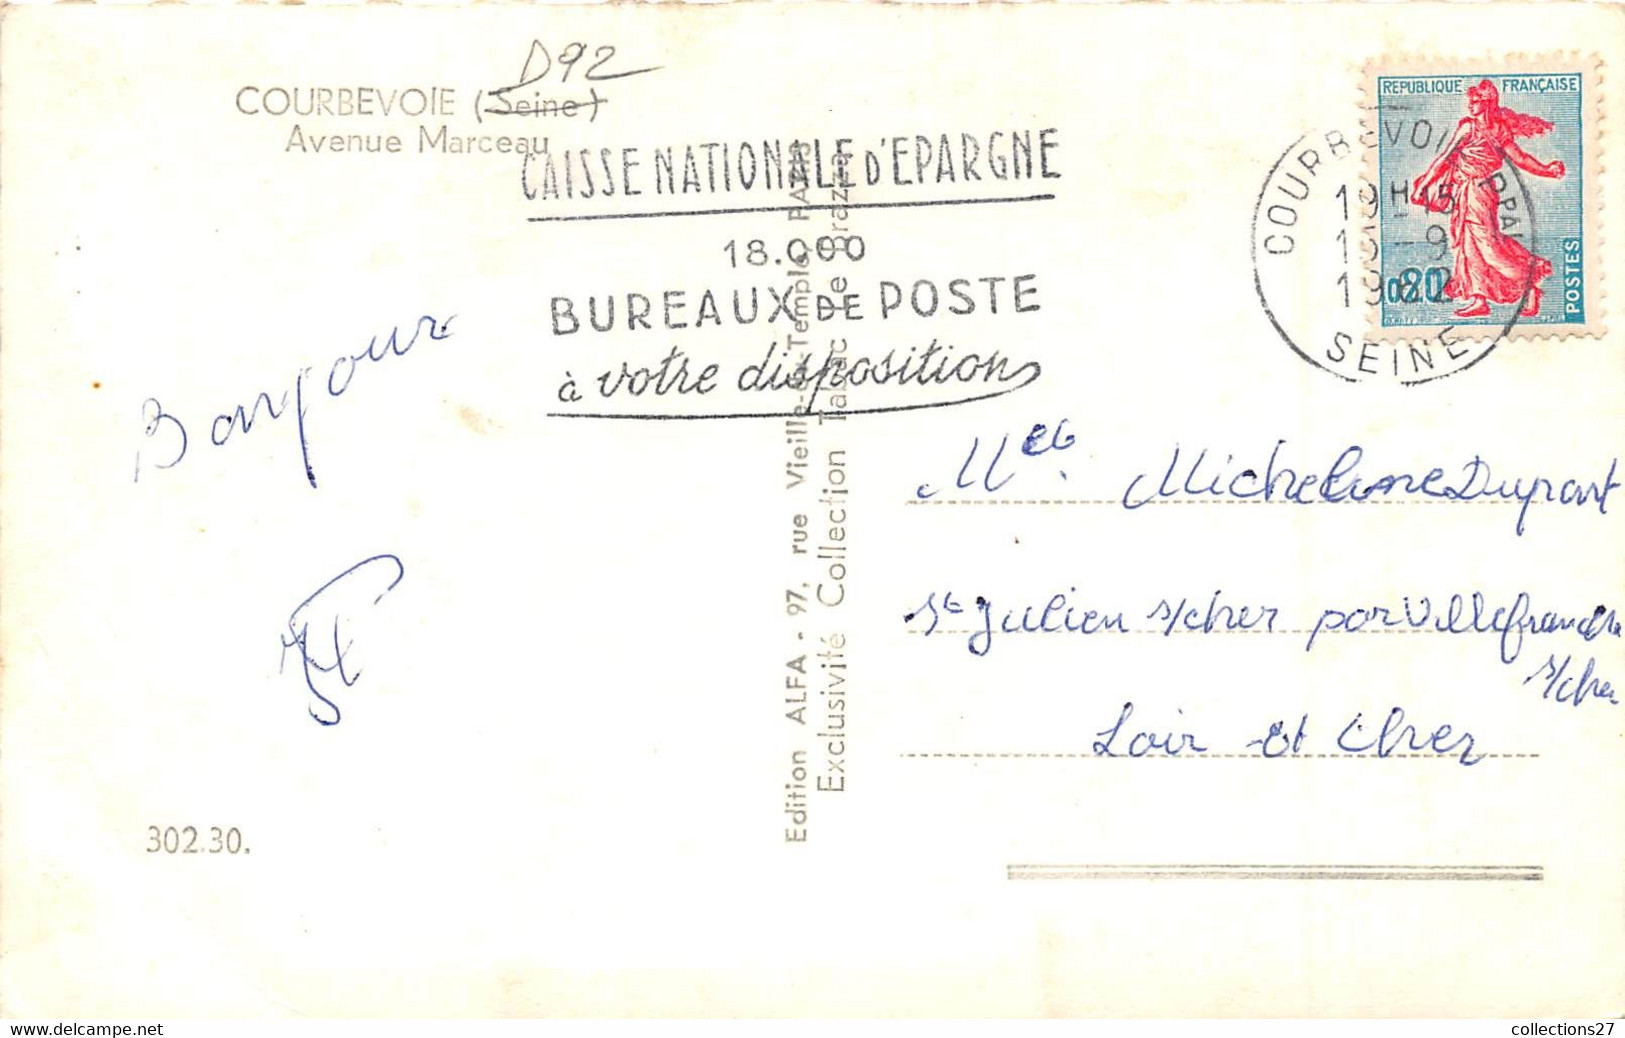 D92
COURBEVOIE (Seine)
Avenue Marceau
CAISSE NATIONALE D'EPARGNE
18.000
BUREAUX DE POSTE
à votre disposition
REPUBLIQUE FRANÇAISE
0,20
POSTES
COURBEVOIE PPAL
19H45
1962
SEINE
Bonjour
Edition ALFA - 97, rue Vieille-du-Temple, PARIS
Exclusivité Collection Tabac Le Brazza
Melle Micheline Dupont
St Julien s/cher par Villefranche
s/cher
Loir et Cher
302.30.
collections27